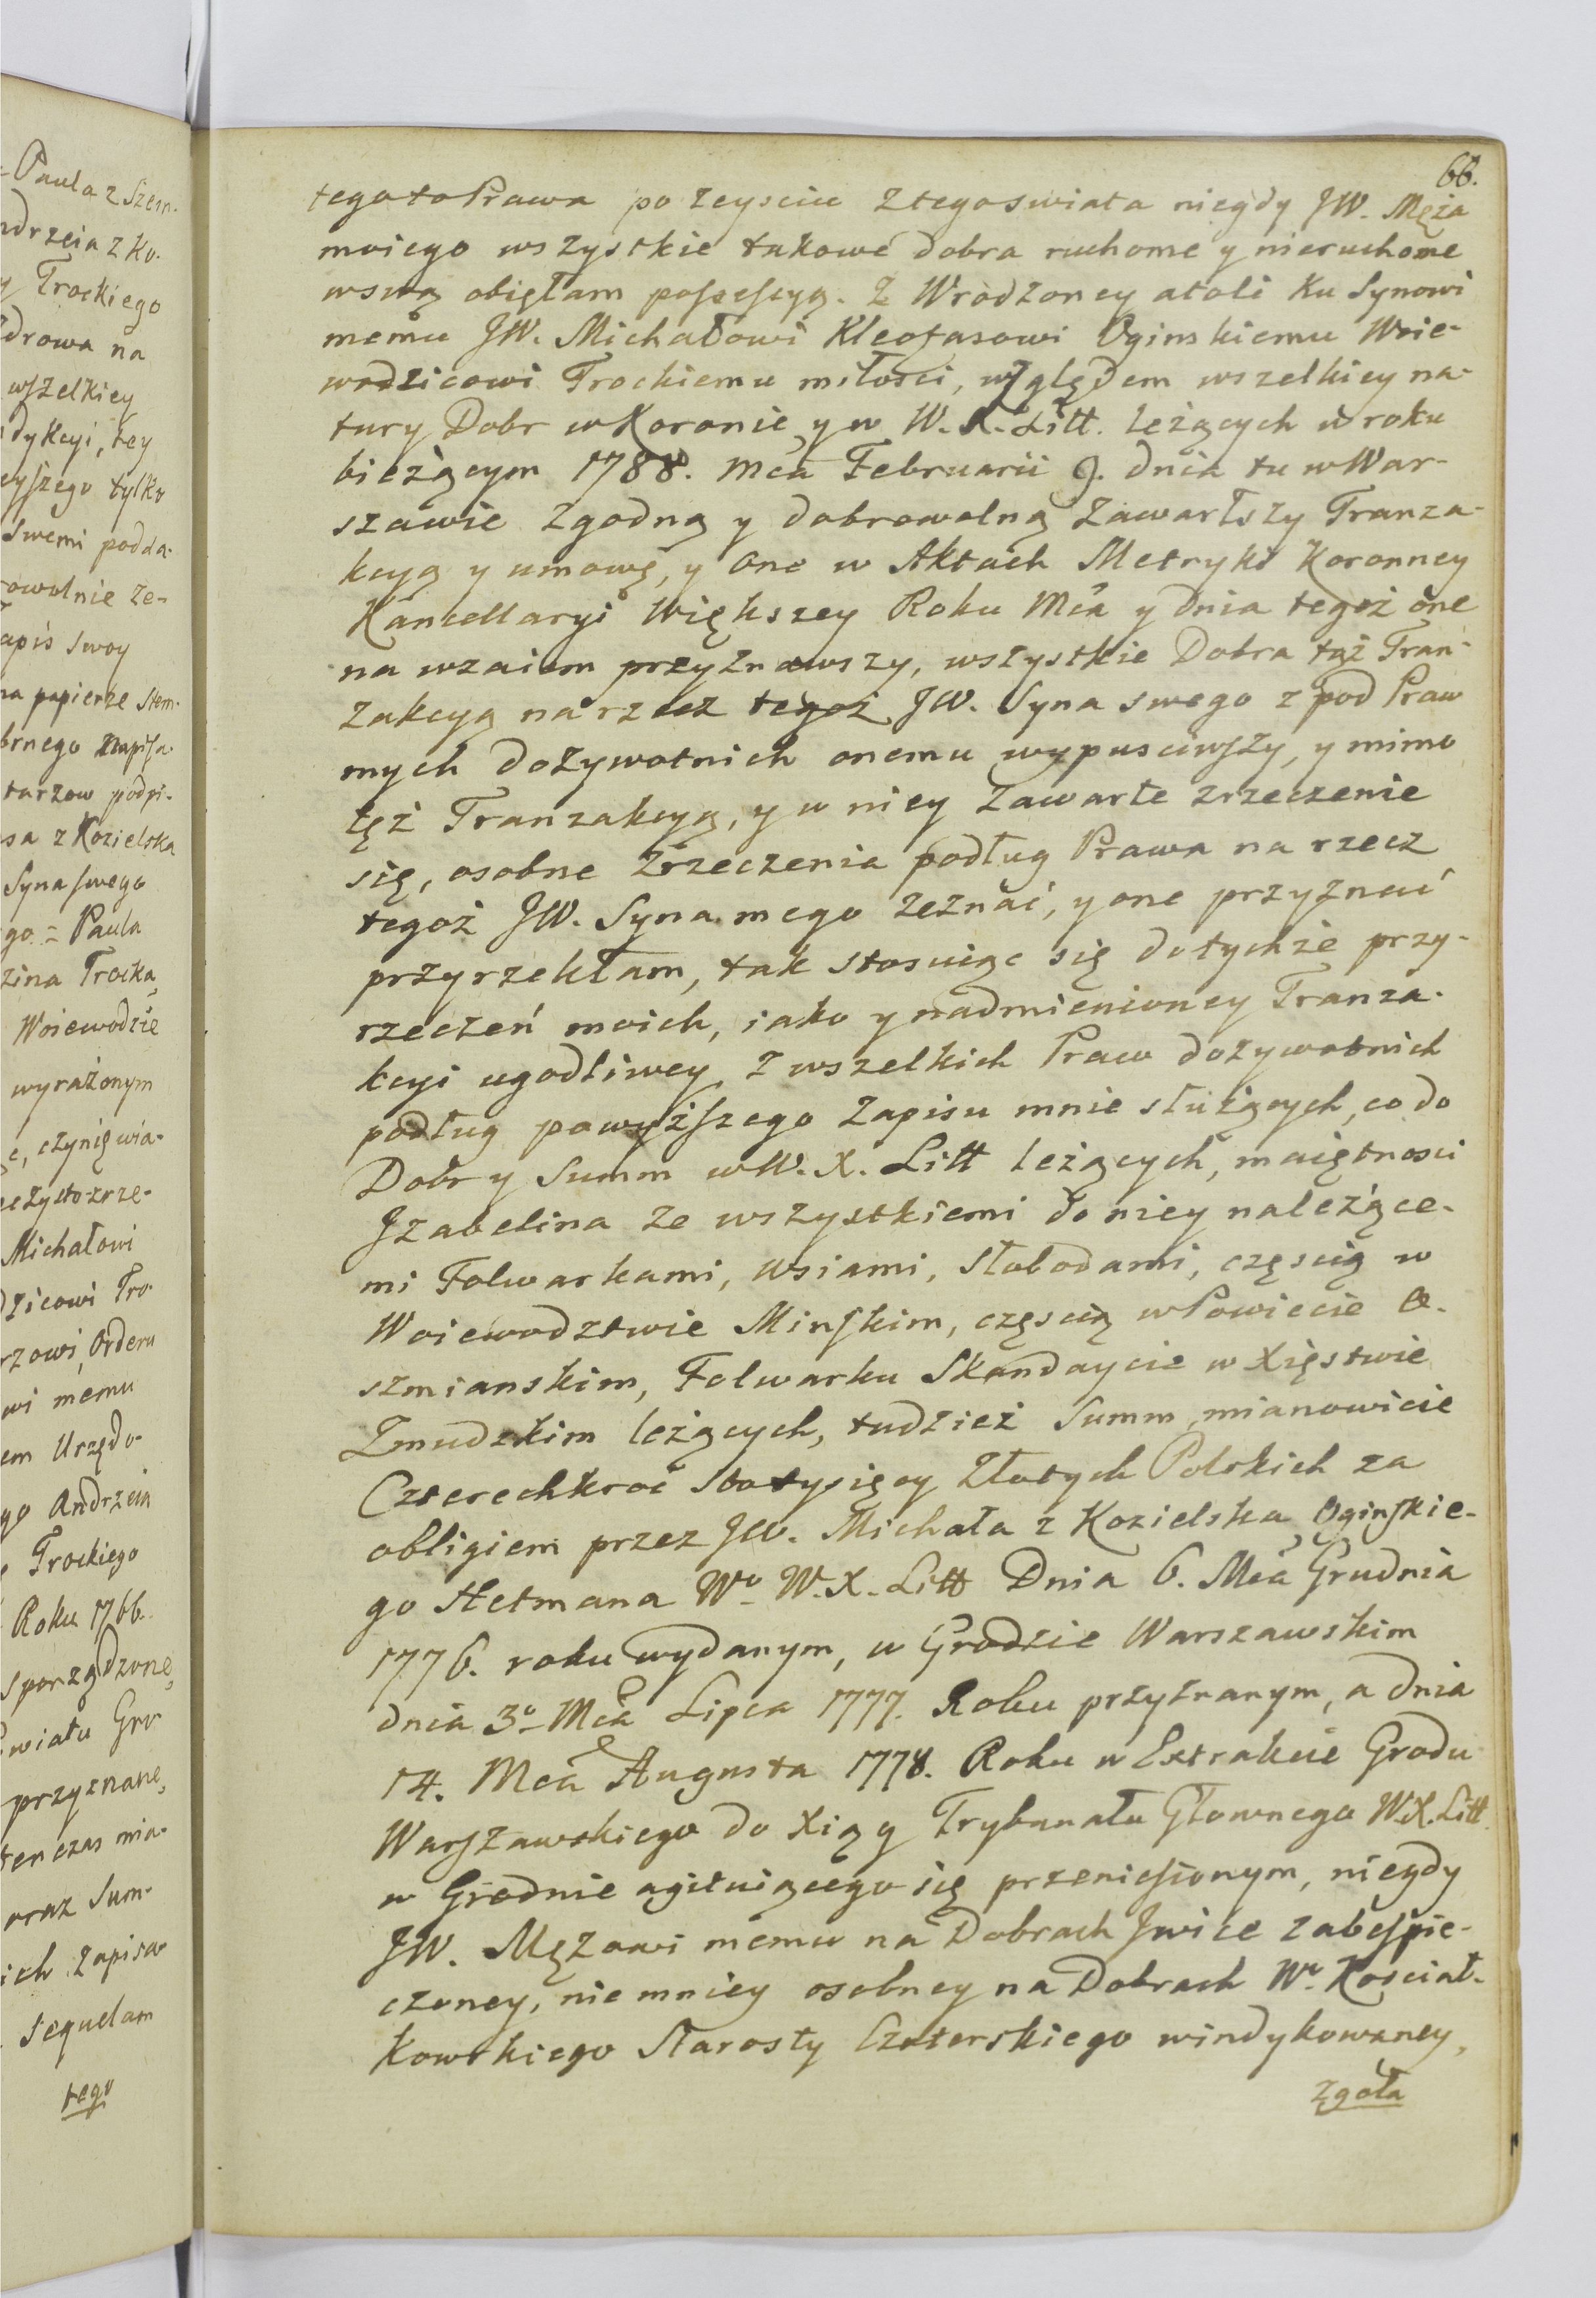 = Paula z Szem-
ndrzeia z Ko-
y Trockiego
zdrowa na
wszelkiey
dykcyi, tey
eyszego tylko
swemi podda-
rowolnie ze-
Zapis swoy
na papierze stem-
brnego napisa-
tarzow podpi-
sa z Kozielska
Syna swego
go = Paula
zina Trocka,
Woiewodzie
wyrażonym
e, czynię wia-
zeczysto-zrze-
Michałowi
dzicowi Tro-
rzowi, Orderu
wi memu
em Urzędo-
go Andrzeia
Trockiego
Roku 1766.
sporządzone,
świata Gro
przyznane,
ten czas mia-
oraz Sum-
ich zapisa-
sequelam
tego
66.
tego to Prawa po zeysciu z tego swiata niegdy JW. Męża
moiego wszystkie takowe dobra ruchome y nieruchome
w swą obięłam possessyą. Z Wrodzoney atoli ku Synowi
memu JW. Michałowi Kleofasowi Oginskiemu Woie-
wodzicowi Trockiemu miłosci, względem wszelkiey na-
tury Dobr w Koronie y w W. X. Litt. leżących w roku
bieżącym 1788. Mca Februarii 9. dnia tu w War-
szawie zgodną y dobrowolną zawarłszy Tranza-
kcyą y umowę, y one w Aktach Metryki Koronney
Kancellaryi Większey Roku Mca y dnia tegoż one
na wzaiem przyznawszy, wszystkie Dobra tąż Tran-
zakcyą na rzecz tegoż JW. Syna swego z pod Praw
mych dożywotnich onemu wypusciwszy, y mimo
tęż Tranzakcyą, y w niey zawarte zrzeczenie
się, osobne zrzeczenia podług Prawa na rzecz
tegoż JW. Syna mego zeznać, y one przyznać
przyrzekłam, tak stosuiąc się do tychże przy-
rzeczeń moich, iako y nadmienioney Tranza-
kcyi ugodliwey, z wszelkich Praw dożywotnich
podług powyższego zapisu mnie służących, co do
Dobr y Summ w W. X. Litt leżących, maiętnosci
Jzabelina ze wszystkiemi do niey należące-
mi Folwarkami, Wsiami, Słobodami, częscią w
Woiewodztwie Minskim, częscią w Powiecie O-
szmianskim, Folwarku Skandaycie w Xięstwie
Zmudzkim leżących, tudzież Summ, mianowicie
Czterechkroć Stotysięcy Złotych Polskich za
obligiem przez JW. Michała z Kozielska Oginskie-
go Hetmana Wo W. X. Litt Dnia 6. Mca Grudnia
1776. roku wydanym, w Grodzie Warszawskim
dnia 3o Mca Lipca 1777. Roku przyznanym, a dnia
14. Mca Augusta 1778. Roku w Extrakcie Grodu
Warszawskiego do Xiąg Trybunału Głownego W.X. Litt.
w Grodnie agituiącego się przeniesionym, niegdy
JW. Mężowi memu na Dobrach Jwice zabespie-
czoney, nie mniey osobney na Dobrach Wo Kosciał-
kowskiego Starosty Czoterskiego windykowaney,
zgoła